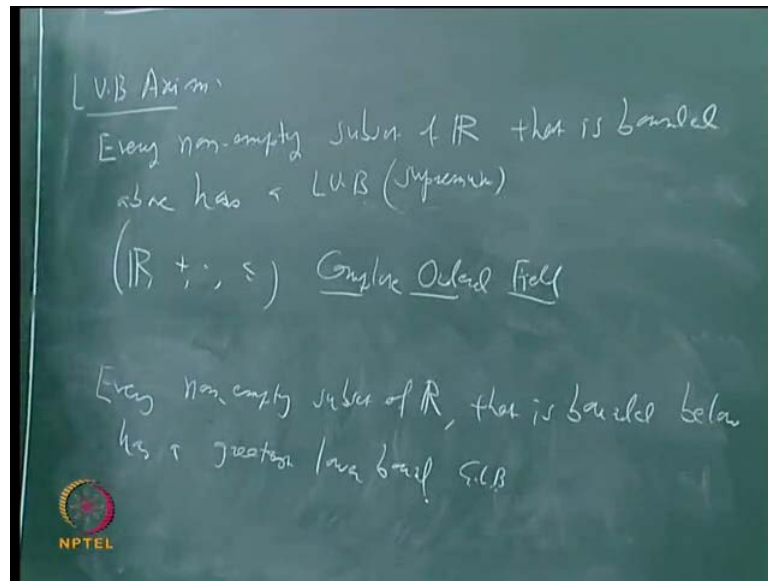 L.U.B Axiom.
Every non-empty subset of ℝ that is bounded
above has a LUB (supremum)
(ℝ, +, ·, ≤) Complete Ordered Field
Every non-empty subset of ℝ, that is bounded below
has a greatest lower bound G.L.B
NPTEL